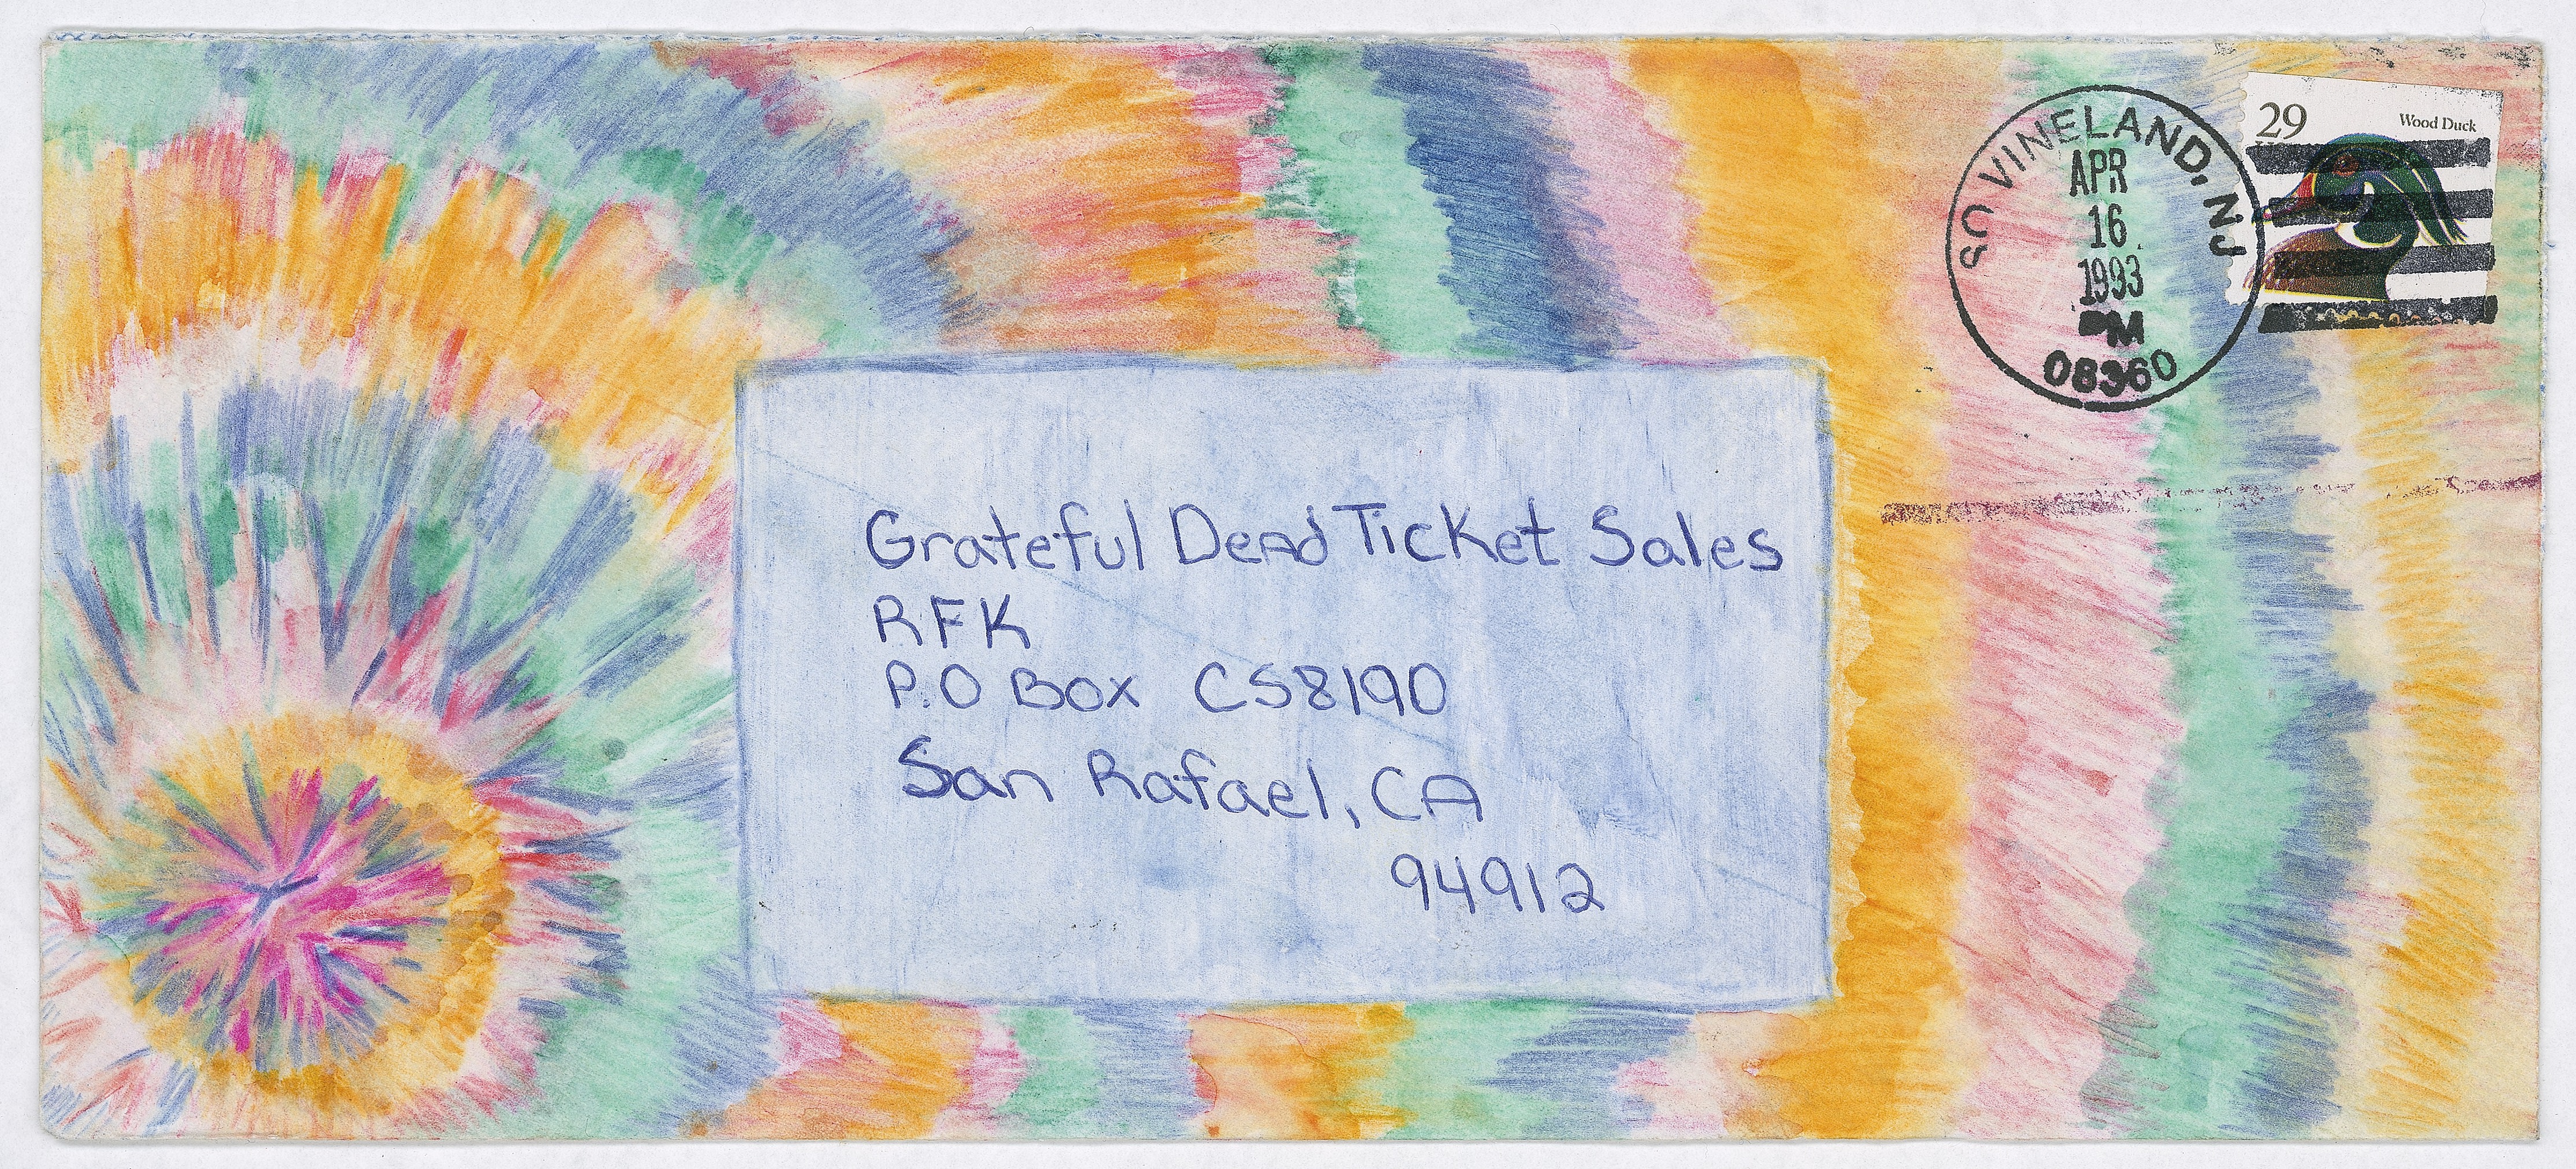 SC VINELAND, NJ
APR
16
1993
PM
08360
29
Wood Duck
Grateful Dead Ticket Sales
RFK
P.O Box CS8190
San Rafael, CA
94912